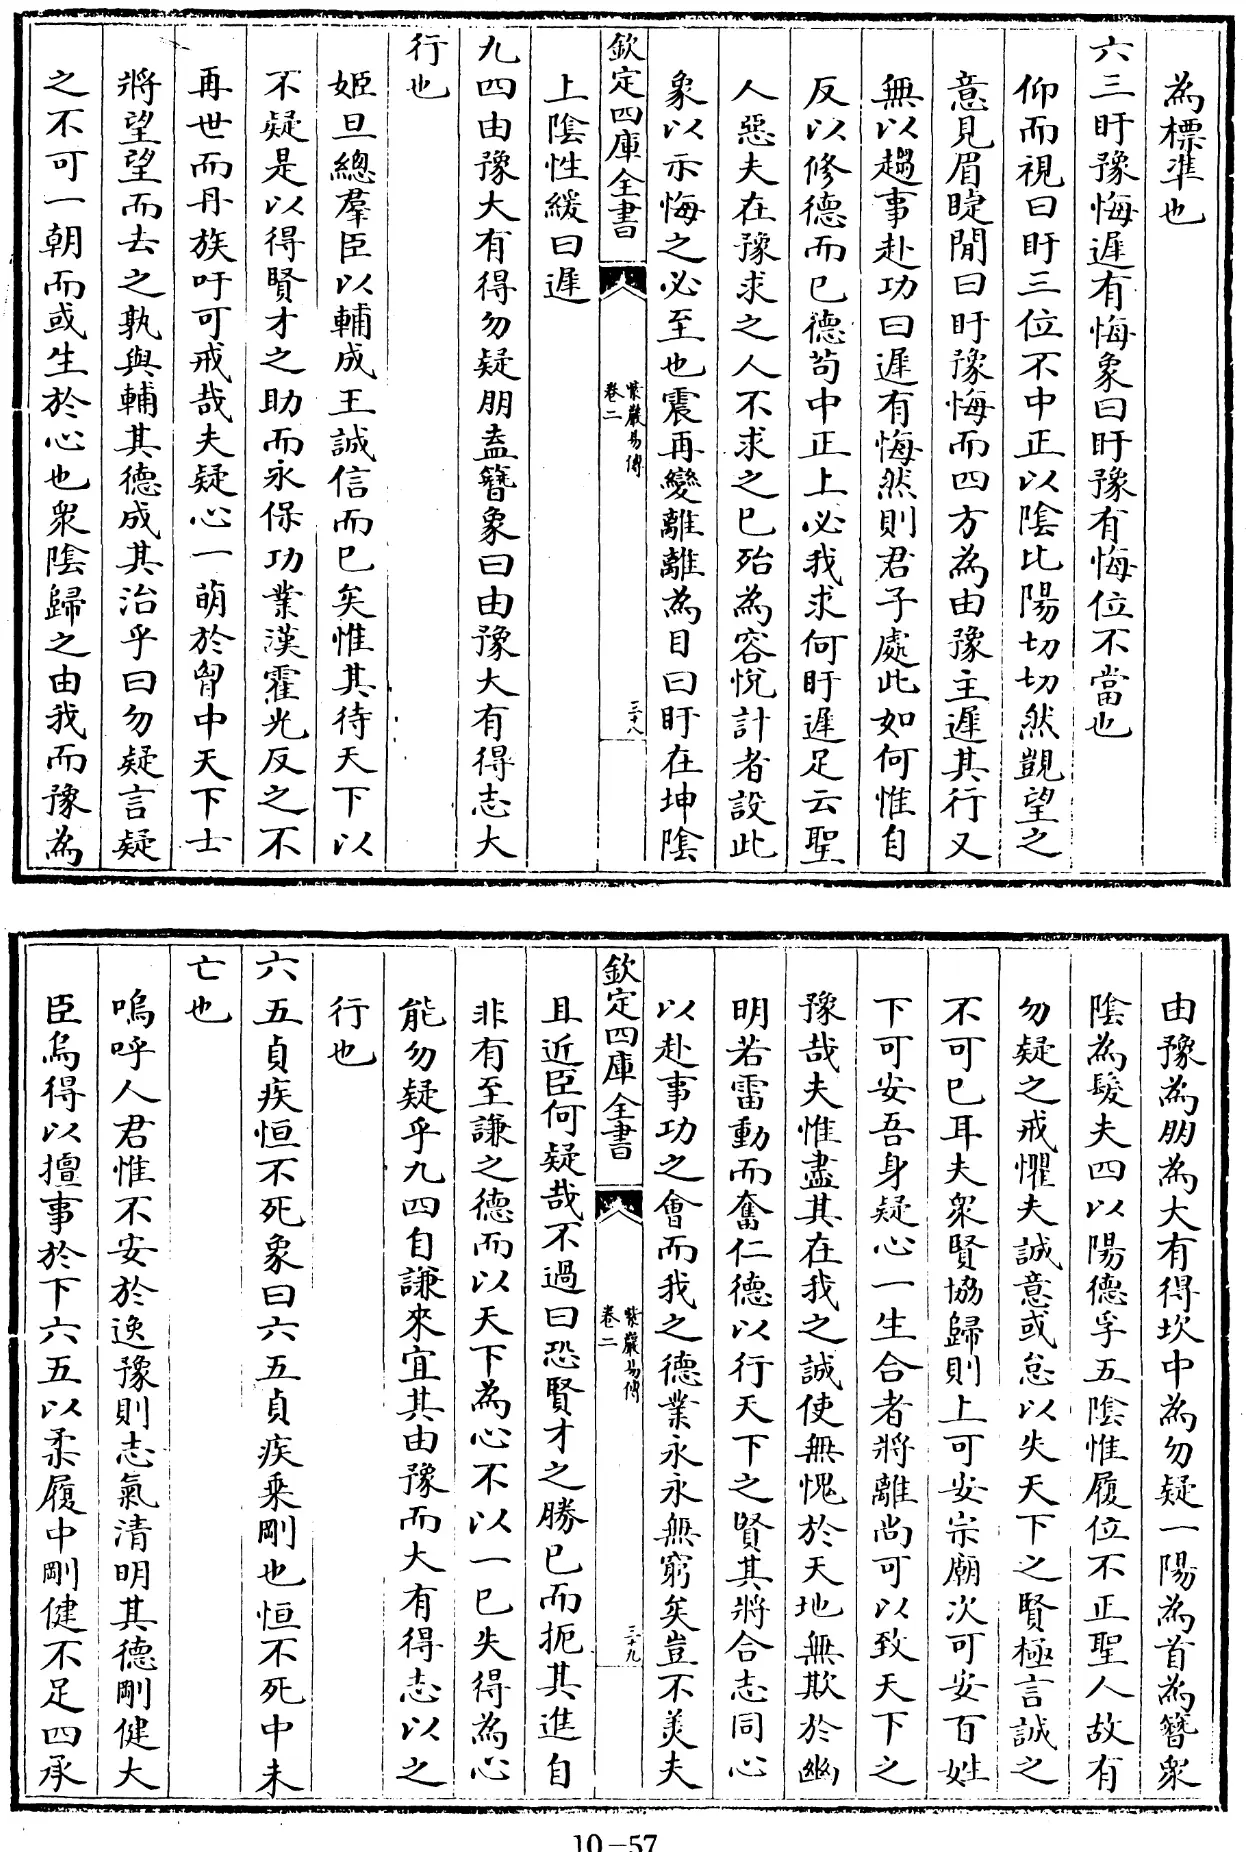 為標準也
六三盱豫悔遲有悔象曰盱豫有悔位不當也
仰而視曰盱三位不中正以陰比陽切切然覬望之
意見眉睫閒曰盱豫悔而四方為由豫主遲其行又
無以趨事赴功曰遲有悔然則君子處此如何惟自
反以修德而已德苟中正上必我求何盱遲足云聖
人惡夫在豫求之人不求之已殆為容悅計者設此
象以示悔之必至也震再變離離為目曰盱在坤陰
欽定四庫全書
紫巖易傳
卷二
三十八
上陰性緩曰遲
九四由豫大有得勿疑朋盍簪象曰由豫大有得志大
行也
姬旦總羣臣以輔成王誠信而已矣惟其待天下以
不疑是以得賢才之助而永保功業漢霍光反之不
再世而丹族吁可戒哉夫疑心一萌於胷中天下士
將望望而去之孰與輔其德成其治乎曰勿疑言疑
之不可一朝而或生於心也衆陰歸之由我而豫為
由豫為朋為大有得坎中為勿疑一陽為首為簪衆
陰為髮夫四以陽德孚五陰惟履位不正聖人故有
勿疑之戒懼夫誠意或怠以失天下之賢極言誠之
不可已耳夫衆賢協歸則上可安宗廟次可安百姓
下可安吾身疑心一生合者將離尚可以致天下之
豫哉夫惟盡其在我之誠使無愧於天地無欺於幽
明若雷動而奮仁德以行天下之賢其將合志同心
以赴事功之會而我之德業永永無窮矣豈不美夫
欽定四庫全書
紫巖易傳
卷二
三十九
且近臣何疑哉不過曰恐賢才之勝已而扼其進自
非有至謙之德而以天下為心不以一已失得為心
能勿疑乎九四自謙來宜其由豫而大有得志以之
行也
六五貞疾恒不死象曰六五貞疾乘剛也恒不死中未
亡也
嗚呼人君惟不安於逸豫則志氣清明其德剛健大
臣烏得以擅事於下六五以柔履中剛健不足四承
10-57